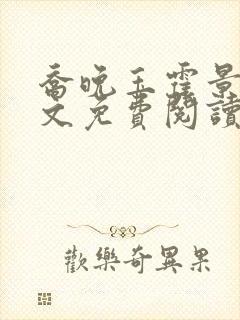 喬晚玉霆景
文免費閱讀
歡樂奇異果